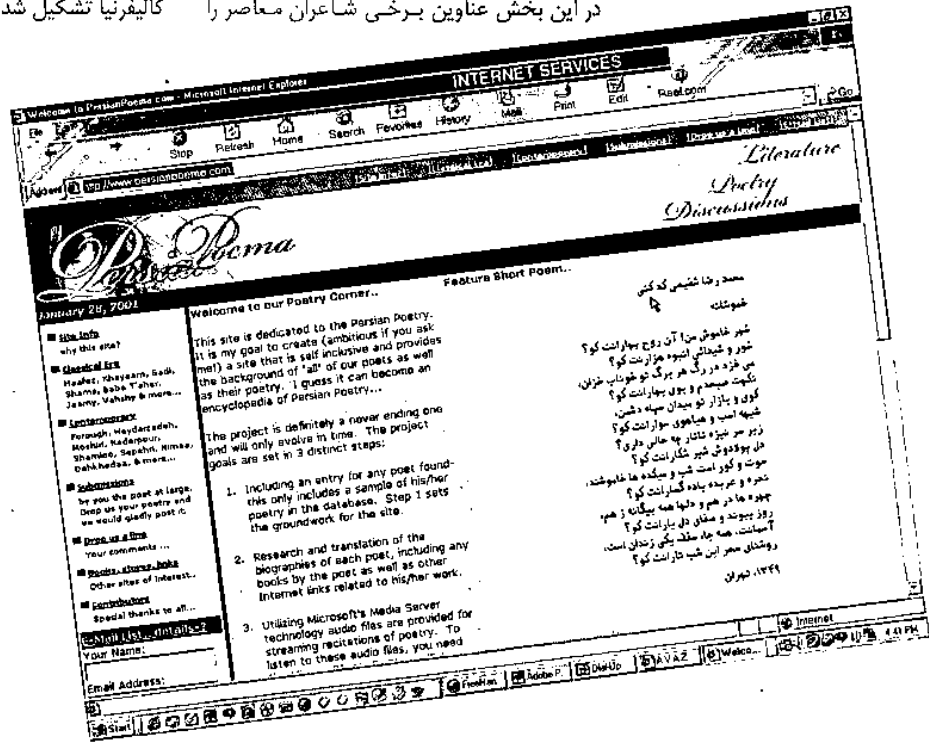 در این بخش عناوین برخی شاعران معاصر را
کالیفرنیا تشکیل شد
Welcome to PersianPoema.com - Microsoft Internet Explorer
INTERNET SERVICES
File
Stop Refresh Home Search Favorites History Mail Print Edit Real.com
Address http://www.persianpoema.com Go
Literature
Poetry
Discussions
Persian Poema
January 28, 2001
Site Info
why this site?
Classical Era
Haafez, Khayaam, Sadi,
Shams, Baba Taher,
Jaamy, Vahshy & more...
Contemporary
Forough, Heydarzadeh,
Moshiri, Naderpour,
Shamloo, Sepehri, Nimaa,
Dehkhodaa, & more...
Submissions
by you the poet at large.
Drop us your poetry and
we would gladly post it.
Drop us a line
Your comments ...
Books, stores, links
Other sites of interest..
Contributors
Special thanks to all...
E-Mail List
Your Name:
Email Address:
Welcome to our Poetry Corner..
This site is dedicated to the Persian Poetry.
It is my goal to create (ambitious if you ask
me!) a site that is self inclusive and provides
the background of 'all' of our poets as well
as their poetry. I guess it can become an
encyclopedia of Persian Poetry...
The project is definitely a never ending one
and will only evolve in time. The project
goals are set in 3 distinct steps:
1. Including an entry for any poet found-
this only includes a sample of his/her
poetry in the database. Step 1 sets
the groundwork for the site.
2. Research and translation of the
biographies of each poet, including any
books by the poet as well as other
Internet links related to his/her work.
3. Utilizing Microsoft's Media Server
technology audio files are provided for
streaming recitations of poetry. To
listen to these audio files, you need
Feature Short Poem..
محمد رضا شفیعی کدکنی
خموشانه
شهر خاموش من! آن روح بهارانت کو؟
شور و شیدائی انبوه هزارانت کو؟
می خزد در رگ هر برگ تو خوناب خزان،
نکهت صبحدم و بوی بهارانت کو؟
کوی و بازار تو میدان سپاه دشمن،
شیهه اسب و هیاهوی سوارانت کو؟
زیر سر نیزه تاتار چه حالی داری؟
دل پولادوش شیر شکارانت کو؟
سوت و کور است شب و میکده ها خاموشند،
نعره و عربده باده گسارانت کو؟
چهره ها در هم و دلها همه بیگانه ز هم،
روز پیوند و صفای دل یارانت کو؟
آسمانت، همه جا، سقف یکی زندان است،
روشنای سحر این شب تارانت کو؟
۱۳۴۹، تهران
Internet
Start FreeHan.. Adobe P.. DialUp AVAZ Welco... 4:41 PM